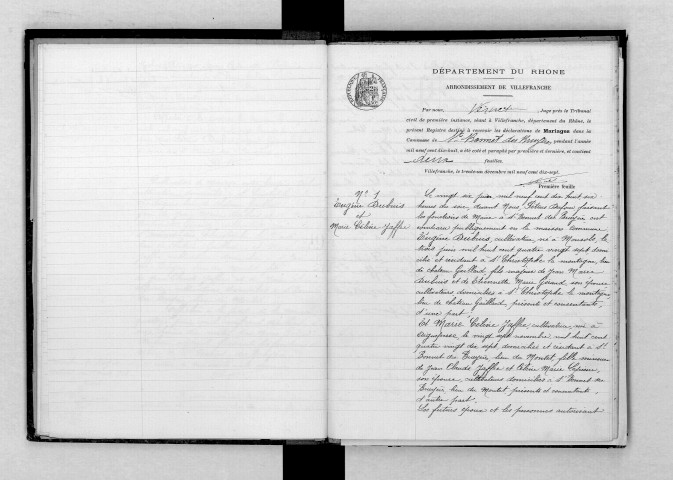 DÉPARTEMENT DU RHONE
ARRONDISSEMENT DE VILLEFRANCHE
Par nous, Juge près le Tribunal
civil de première instance, séant à Villefranche, département du Rhône, le
présent Registre destiné à recevoir les déclarations de Mariages dans la
Commune de St Bonnet des Bruyères, pendant l'année
mil neuf cent dix-huit a été coté et paraphé par première et dernière, et contient
deux feuilles.
Villefranche, le trente-un décembre mil neuf cent dix-sept.
Première feuille
No 1
Eugène Dubuis
et
Marie Céline Jaffre
Le vingt six juin mil neuf cent dix huit six
heures du soir, devant Nous faisant
les fonctions de Maire à St Bonnet des Bruyères ont
comparu publiquement en la maison commune
Eugène Dubuis, cultivateur, né à Monsols, le
trois juin mil huit cent quatre vingt sept domi
cilié et résidant à St Christophe la montagne, lieu
de château Gaillard, fils majeur de Jean Marie
Dubuis et de Marie son épouse
cultivateurs domiciliés à St Christophe la montagne
lieu de château Gaillard, présents et consentants,
d'une part.
Et Marie Céline Jaffre, cultivatrice, née à
Aigueperse, le vingt sept novembre mil huit cent
quatre vingt dix sept domiciliée et résidant à St
Bonnet des Bruyères lieu du Montet fille mineure
de Jean Claude Jaffre et Céline Marie
son épouse, cultivateurs domiciliés à St Bonnet des
Bruyères lieu du Montet présents et consentants
d'autre part.
Les futurs époux et les personnes autorisant